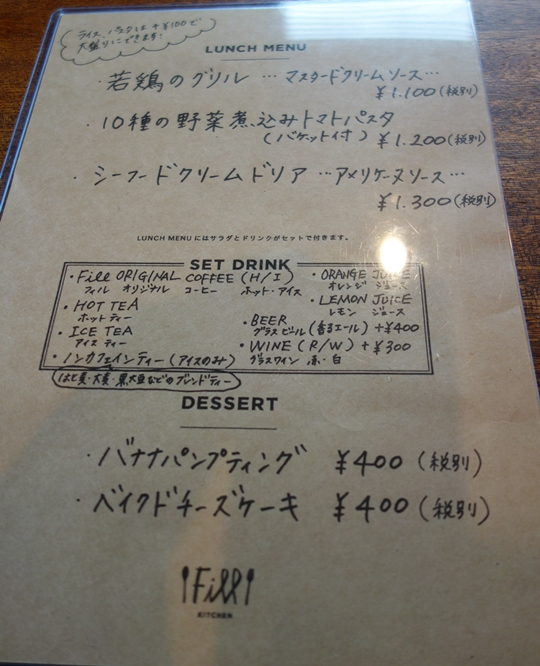 ライス、パスタは+¥100で
大盛りにできます!
LUNCH MENU
・若鶏のグリル … マスタードクリームソース…
¥1.100(税別)
・10種の野菜煮込みトマトパスタ
(バケット付) ¥1.200(税別)
・シーフードクリームドリア …アメリケーヌソース…
¥1.300(税別)
LUNCH MENU にはサラダとドリンクがセットで付きます。
SET DRINK
・Fill ORIGINAL COFFEE (H/I)
フィル オリジナル コーヒー ホット・アイス
・HOT TEA
ホットティー
・ICE TEA
アイスティー
・ノンカフェインティー(アイスのみ)
はと麦・大麦・黒大豆などのブレンドティー
・ORANGE JUICE
オレンジ ジュース
・LEMON JUICE
レモン ジュース
・BEER
グラスビール(香るエール) +¥400
・WINE (R/W) + ¥300
グラスワイン 赤・白
DESSERT
・バナナパンプティング ¥400(税別)
・ベイクドチーズケーキ ¥400(税別)
Fill
KITCHEN